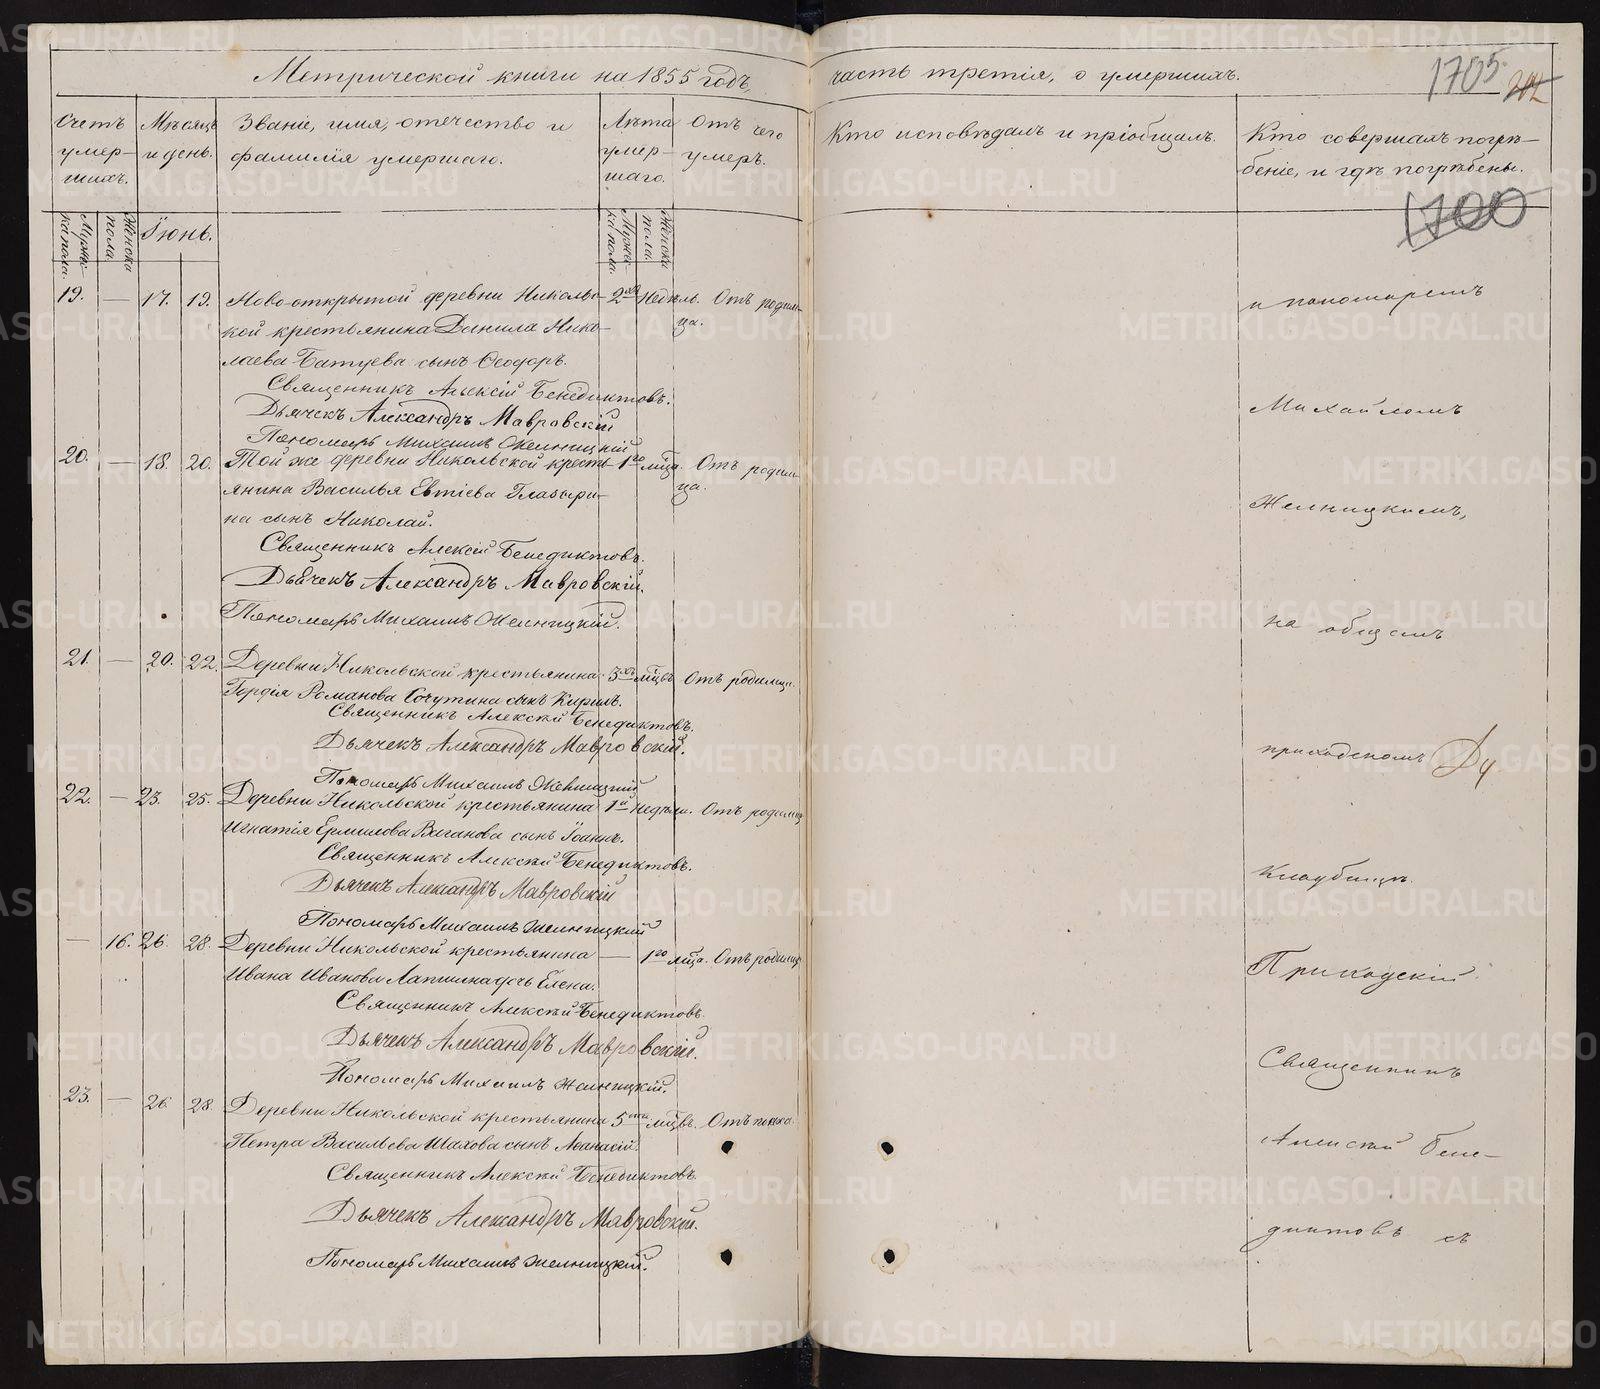 Метрической книги на 1855 годъ,
часть третія, о умершихъ.
1705
Счетъ умер-шихъ.
Мѣсяцъ и день.
Званіе, имя, отечество и
фамилія умершаго.
Лѣта умер-шаго.
Отъ чего умеръ.
Кто исповѣдалъ и пріобщалъ.
Кто совершалъ погрѣ-
беніе, и гдѣ погребены.
1700
Мужес-ка пола.
Женска пола.
Іюнь.
Мужес-ка пола.
Женска пола.
19. — 17. 19. Ново-открытой деревни Николь- 2хъ Недѣль. Отъ родим-
кой крестьянина Данила Нико- ца.
лаева Батуева сынъ Ѳеодоръ.
Священникъ Алексій Бенедиктовъ.
Дьячекъ Александръ Мавровскій
Пономарь Михаилъ Желницкій
20. — 18. 20. Той же деревни Никольской кресть- 1го мѣца. Отъ родим-
янина Василья Евтіева Глазыри- ца.
на сынъ Николай.
Священникъ Алексій Бенедиктовъ.
Дьячекъ Александръ Мавровскій.
Пономарь Михаилъ Желницкій.
21. — 20. 22. Деревни Никольской крестьянина 3хъ мѣцвъ Отъ родимца.
Гордія Романова Сочутина сынъ Кирилъ.
Священникъ Алексій Бенедиктовъ.
Дьячекъ Александръ Мавровскій.
Пономарь Михаилъ Желницкій
22. — 23. 25. Деревни Никольской крестьянина 1й недѣли. Отъ родимца
Игнатія Ермилова Ваганова сынъ Іоаннъ.
Священникъ Алексій Бенедиктовъ.
Дьячекъ Александръ Мавровскій
Пономарь Михаилъ Желницкій
— 16. 26. 28. Деревни Никольской крестьянина — 1го мѣца. Отъ родимца
Ивана Иванова Лапшина дочь Елена.
Священникъ Алексій Бенедиктовъ.
Дьячекъ Александръ Мавровскій.
Пономарь Михаилъ Желницкій.
23. — 26. 28. Деревни Никольской крестьянина 5ти мѣцвъ. Отъ поноса.
Петра Васильева Шахова сынъ Аѳанасій.
Священникъ Алексій Бенедиктовъ
Дьячекъ Александръ Мавровскій.
Пономарь Михаилъ Желницкій.
и пономаремъ
Михайломъ
Желницкимъ,
на общемъ
приходскомъ
Кладбищѣ.
Приходскій
Священникъ
Алексій Бене-
диктовъ съ
METRIKI.GASO-URAL.RU